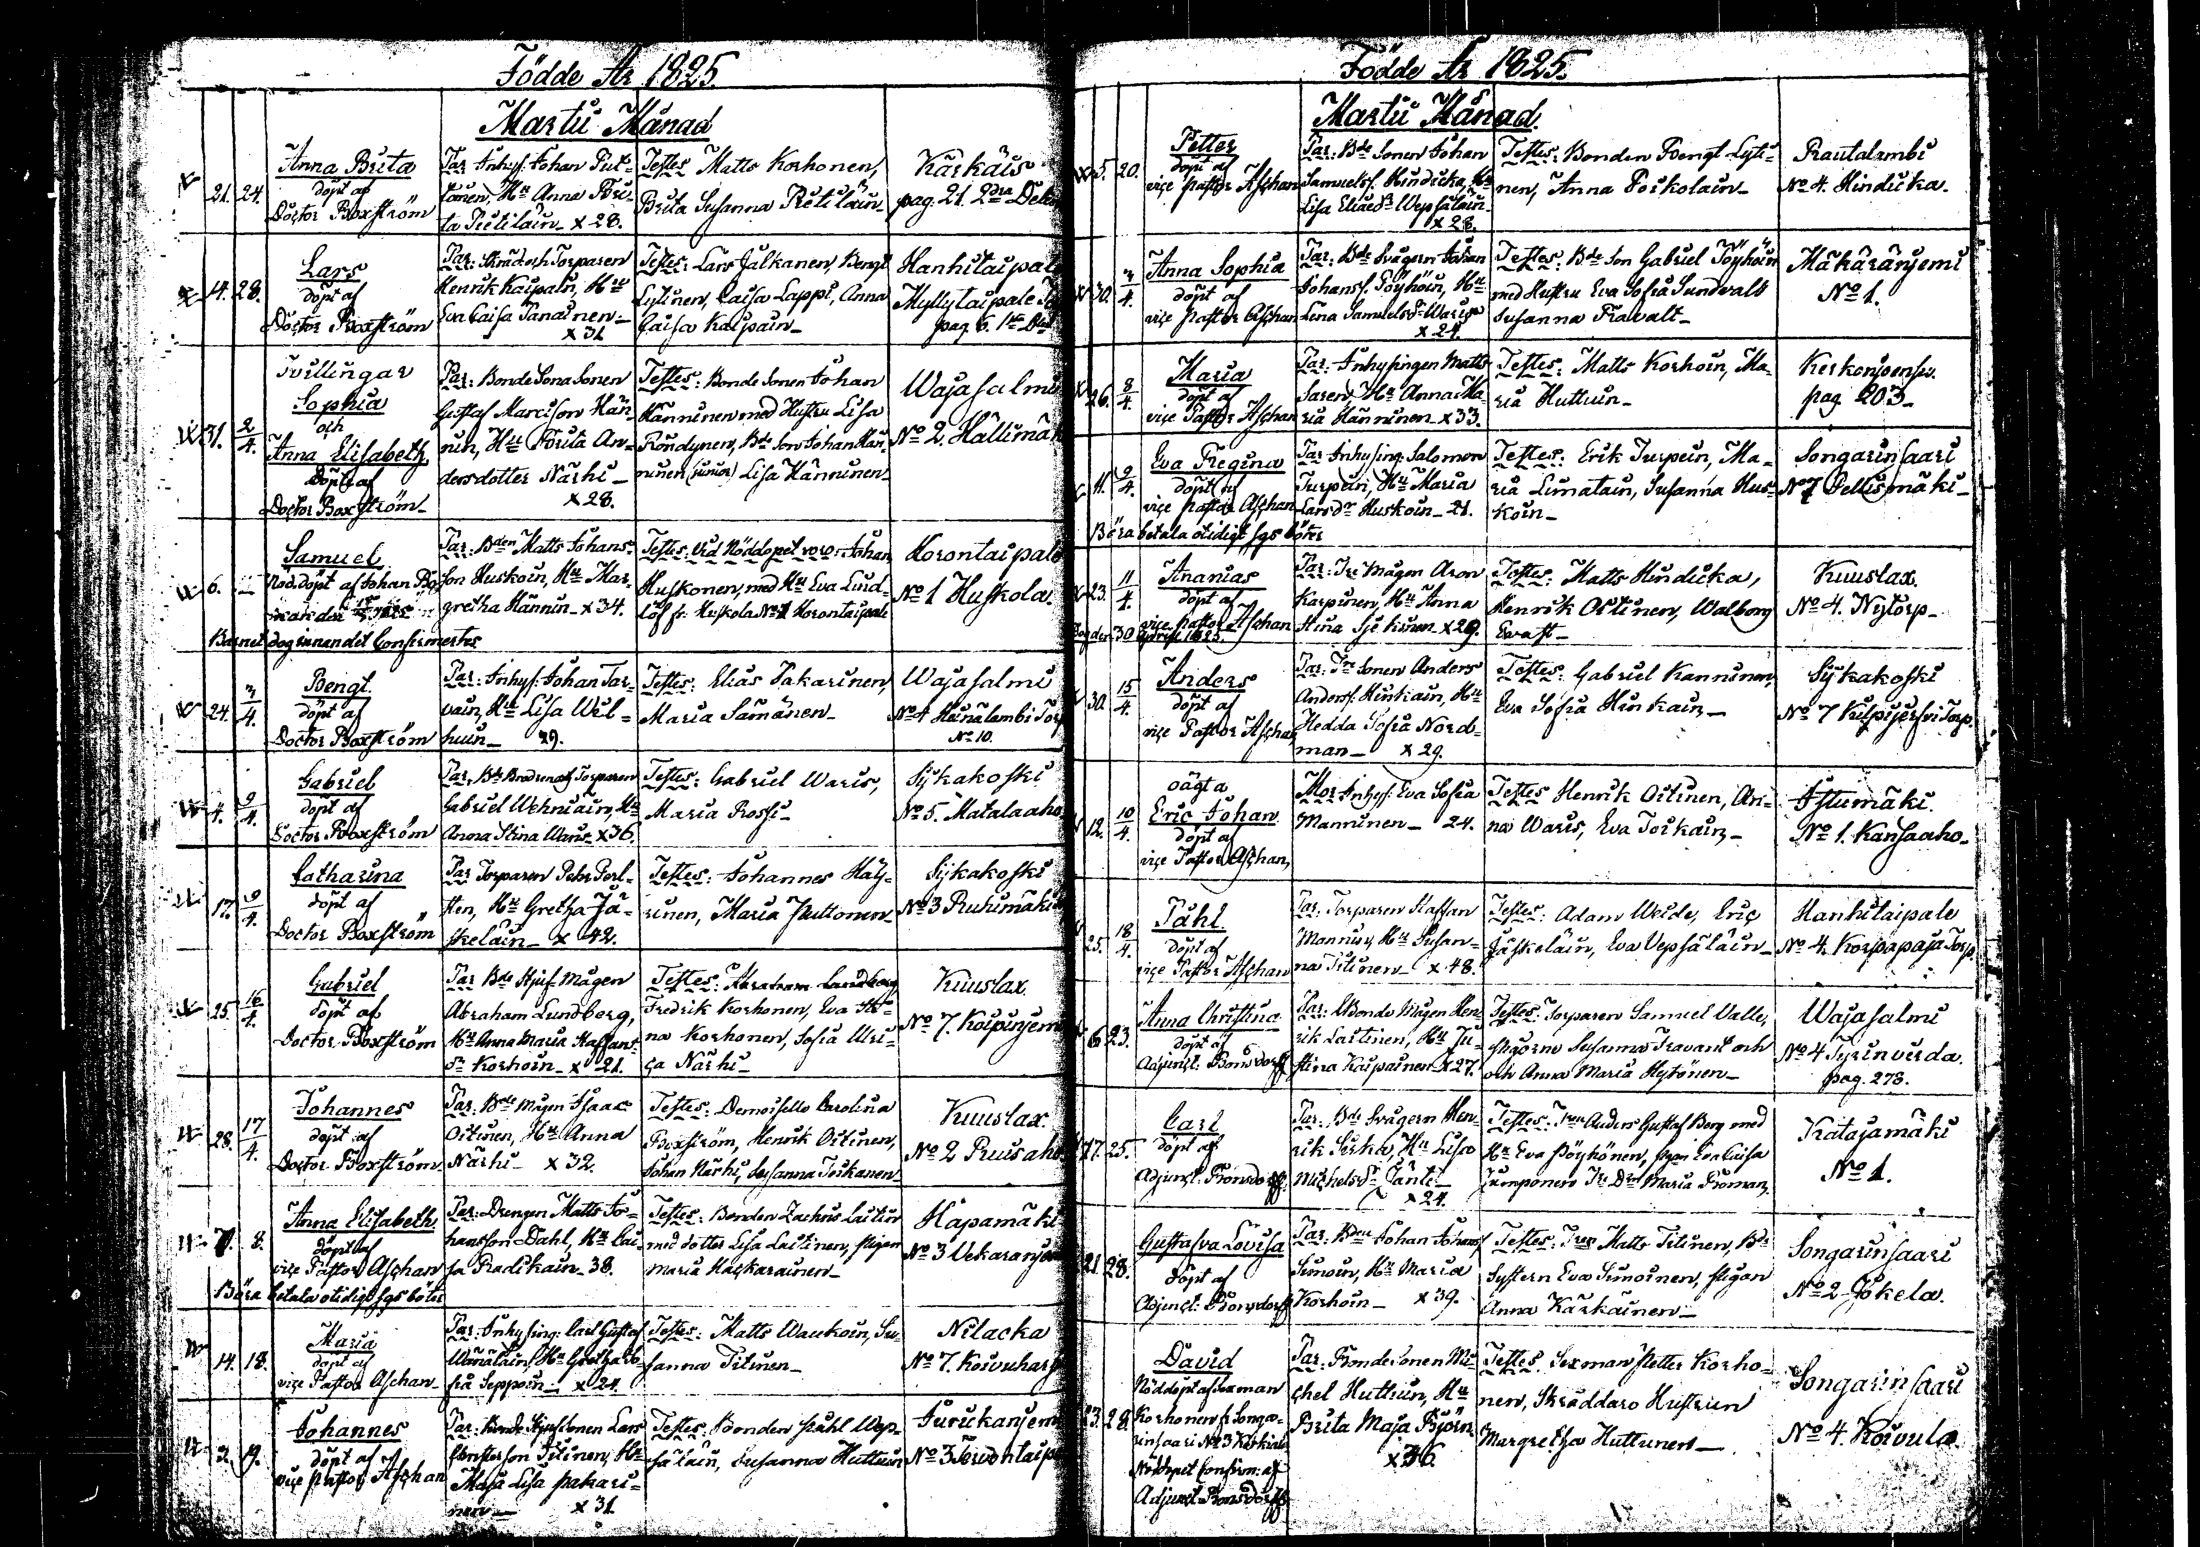 Födde År 1825.
Martii Månad
21. 24.
Anna Brita
döpt af
Doctor Boxström
Far: Inhys. Johan Put-
konen, Hu Anna Bri-
ta Pietiläin x 28.
Testes Matts Korhonen,
Brita Susanna Pietiläin
Kärkäis
pag. 21. 2dra Delen
14. 28.
Lars
döpt af
Doctor Boxström
Henrik Kaipain, Hu
Eva Caisa
x 31
Testes: Lars Jalkanen, Bengt
Lytinen, Caisa Lappi, Anna
Caisa Kaipain
Hanhitaipale
Myllytaipale
pag 6. 1sta
Tvillingar
31. 2/4.
Sophia
och
Anna Elisabeth
Döpt af
Doctor Boxström
Far: Bonde Sona Sonen
Gustaf Hän-
nin, Hu Brita An-
dersdotter Närhi
x 28.
Testes: Bonde Sonen Johan
Hänninen med Hustru Lisa
Röndynen, Bde Son Johan Hän-
ninen (junior) Lisa Hänninen
Wajasalmi
No 2. Hällimäki
6.
Samuel
Nöd.döpt af Johan
Far: Bden Matts Johans-
son Huskoin, Hu Mar-
gretha Hännin x 34.
Testes: vid Nöddopet voro: Johan
Huskonen, med Hu Eva Lind-
löf fr. Huskola No 1 Korontaipale
Korontaipale
No 1 Huskola.
Barnet dog innan det Confirmertes
24. 3/4.
Bengt
döpt af
Doctor Boxström
Far: Inhys: Johan Tar-
vain, Hu Lisa Wil-
huin 29.
Testes: Elias Pakarinen,
Maria Sämänen
Wajasalmi
No 4 Heinälambi Torp
No 10.
4. 9/4.
Gabriel
döpt af
Doctor Boxström
Gabriel Wehniäin, Hu
Anna Stina Waris x 36.
Testes: Gabriel Waris,
Maria Rossi
Sijkakoski
No 5. Matalaaho
17. 9/4.
Catharina
döpt af
Doctor Boxström
Far Torparen Pehr Perl-
ten, Hu Gretha Jä-
skeläin x 42.
Testes: Johannes Häy-
rinen, Maria Puttonen
Sijkakoski
No 3 Ruhimäki
25. 16/4.
Gabriel
döpt af
Doctor Boxström
Far Bde Styf Mågen
Abraham Lundberg,
Hu Anna Maria Staffans-
dr Korhoin x 21.
Testes: Abraham Lundberg
Fredrik Korhonen, Eva Sti-
na Korhonen, Sofia Ulri-
ca Närhi
Kuuslax
No 7. Koipinjemi
28. 17/4.
Johannes
döpt af
Doctor Boxström
Far: Bde Mågen Isaac
Oitinen, Hu Anna
Närhi x 32.
Testes: Demoiselle Carolina
Boxström, Henrik Oitinen,
Johan Närhi, Susanna Toikanen
Kuuslax
No 2 Ruusaho
7. 8.
Anna Elisabeth
döpt af
vice Pastor Aschan
Far: Drengen Matts Jo-
hansson Dahl, Hu Cai-
sa Radikain 38.
Testes: Bonden Zachris Laitin
med dotter Lisa Laitinen, pigan
Maria Hackarainen
Hapamäki
No 3 Vekaranjemi
Böra betala otidigt sgs böter
14. 18.
Maria
döpt af
vice Pastor Aschan
Far: Inhysing: Carl Gustaf
Wänäläin, Hu Gretha So-
fia Seppoin x 24.
Testes: Matts Waukoin, Su-
sanna Titinen
Nilacka
No 7. Koivuharju
3. 19.
Johannes
döpt af
vice Pastor Aschan
Far: Bonde Styfsonen Lars
Christersson Titinen, Hu
Maja Lisa Pakari-
nen x 31
Testes: Bonden Påhl Wep-
säläin, Susanna Huttuin
Surukanjemi
No 3 Torvontaipale
Födde År 1825.
Martii Månad.
5. 20.
Petter
döpt af
vice pastor Aschan
Far: Bde Sonen Johan
Samuelss. Hindicka, Hu
Lisa Eliaedr Wepsäläin
x 28.
Testes: Bonden Bengt Lyti-
nen, Anna Poikolain
Rautalambi
No 4. Hindicka.
30. 3/4.
Anna Sophia
döpt af
vice pastor Aschan
Far: Bde Svågern Johan
Johanss. Pöyhöin, Hu
Lena Samuelsdr Waris
x 24.
Testes: Bde Son Gabriel Pöyhöin
med Hustru Eva Sofia Sundvall
Susanna Travalt
Mäkäränjemi
No 1.
26. 8/4.
Maria
döpt af
vice Pastor Aschan
Far: Inhysingen Matts
Saren, Hu Anna Ma-
ria Hänninen x 33.
Testes: Matts Korhoin, Ma-
ria Huttuin
Kerkonjoensu.
pag 203
11. 9/4.
Eva Regina
döpt af
vice pastor Aschan
Far Inhysing: Salomon
Turpein, Hu Maria
Larsdr Huskoin 21.
Testes: Erik Turpein, Ma-
ria Limatain, Susanna Hus-
koin
Songarinsaari
No 7 Pellismäki
Böra betala otidigt sgs böter
23. 11/4.
Ananias
döpt af
vice pastor Aschan
Far: Mågen Aron
Karpinen, Hu Anna
Stina x 29.
Testes: Matts Hindicka,
Henrik Oitinen, Walborg
Kuuslax.
No 4. Nytorp
30 Aprill 1825
30. 15/4.
Anders
döpt af
vice Pastor Aschan
Far: Sonen Anders
Anderss. Hinkain, Hu
Hedda Sofia Nord-
man x 29.
Testes: Gabriel Kanninen,
Eva Sofia Hinkain
Sijkakoski
No 7 Kilpijerfvi Torp.
oägta
12. 10/4.
Eric Johan
döpt af
vice Pastor Aschan
Mor Inhys: Eva Sofia
Manninen 24.
Testes Henrik Oitinen, An-
na Waris, Eva Toikain
Istumäki.
No 1. Kansaaho
25. 18/4.
Påhl
döpt af
vice Pastor Aschan
Far: Torparen Staffan
Monnin, Hu Susan-
na Titinen x 48.
Testes: Adam Weide, Eric
Jäskeläin, Eva Vepsäläin
Hanhitaipale
No 4. Korpapaja Torp.
6. 23.
Anna Christina
döpt af
Adjunct. Bonsdorff
Far: Bonde Mågen Hen-
rik Laitinen, Hu Ju-
stina Kaipainen x 27.
Testes: Torparen Samuel Valle,
pigorne Susanna Travant och
och Anna Maria Hytönen
Wajasalmi
No 4 Tyrinvirda.
pag. 278.
17. 25.
Carl
döpt af
Adjunct. Bonsdorff
Far: Bde Svågern Hen-
rik Sirka, Hu Lisa
Michelsdr Jänti
x 24.
Testes: Anders Gustaf Berg med
Hu Eva Pöyhönen, pigan Eva Caisa
Kumponen Maria Froman,
Katajamäki
No 1.
21 28.
Gustafva Lovisa
döpt af
Adjunct: Bonsdorff
Far: Bden Johan Johanss
Simoin, Hu Maria
Korhoin x 39.
Testes: Matts Titinen, Bde
Systern Eva Simoinen, pigan
Anna Kärkäinen
Songarinsaari
No 2 Jokela.
23. 28.
David
Nöddöpt af Sexman
Korhonen fr Songa-
rinsaari No 3
Nöddopet Confirm: af
Adjunct Bonsdorff
Far: Bonde Sonen Mi-
chel Huttuin, Hu
Brita Maja Björn
x 36.
Testes. Sexman Petter Korho-
nen, Skräddare Hustrun
Margretha Huttunen
Songarinsaari
No 4. Koivula.